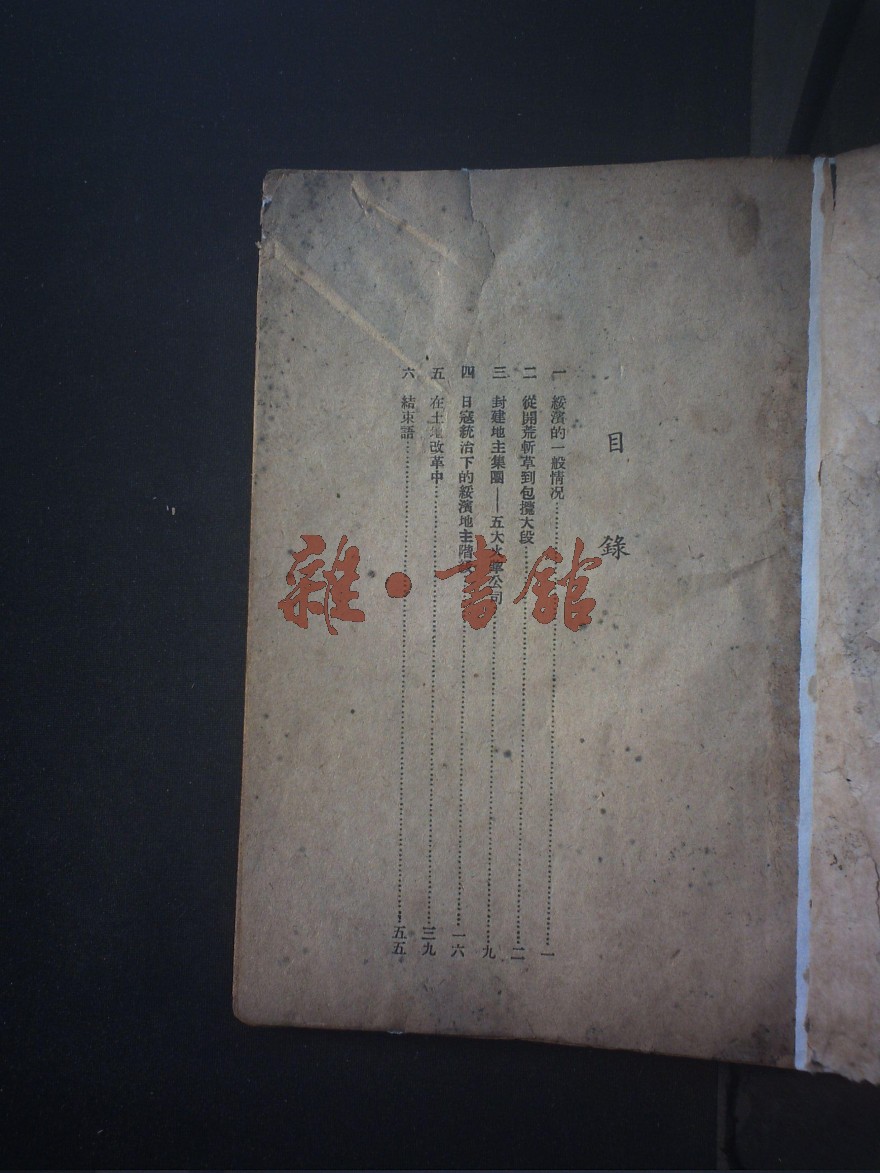 目錄
一 綏濱的一般情況 一
二 從開荒斬草到包攬大段 二
三 封建地主集團——五大火犂公司 九
四 日寇統治下的綏濱地主階 一六
五 在土地改革中 三九
六 結束語 五五
雜·書館